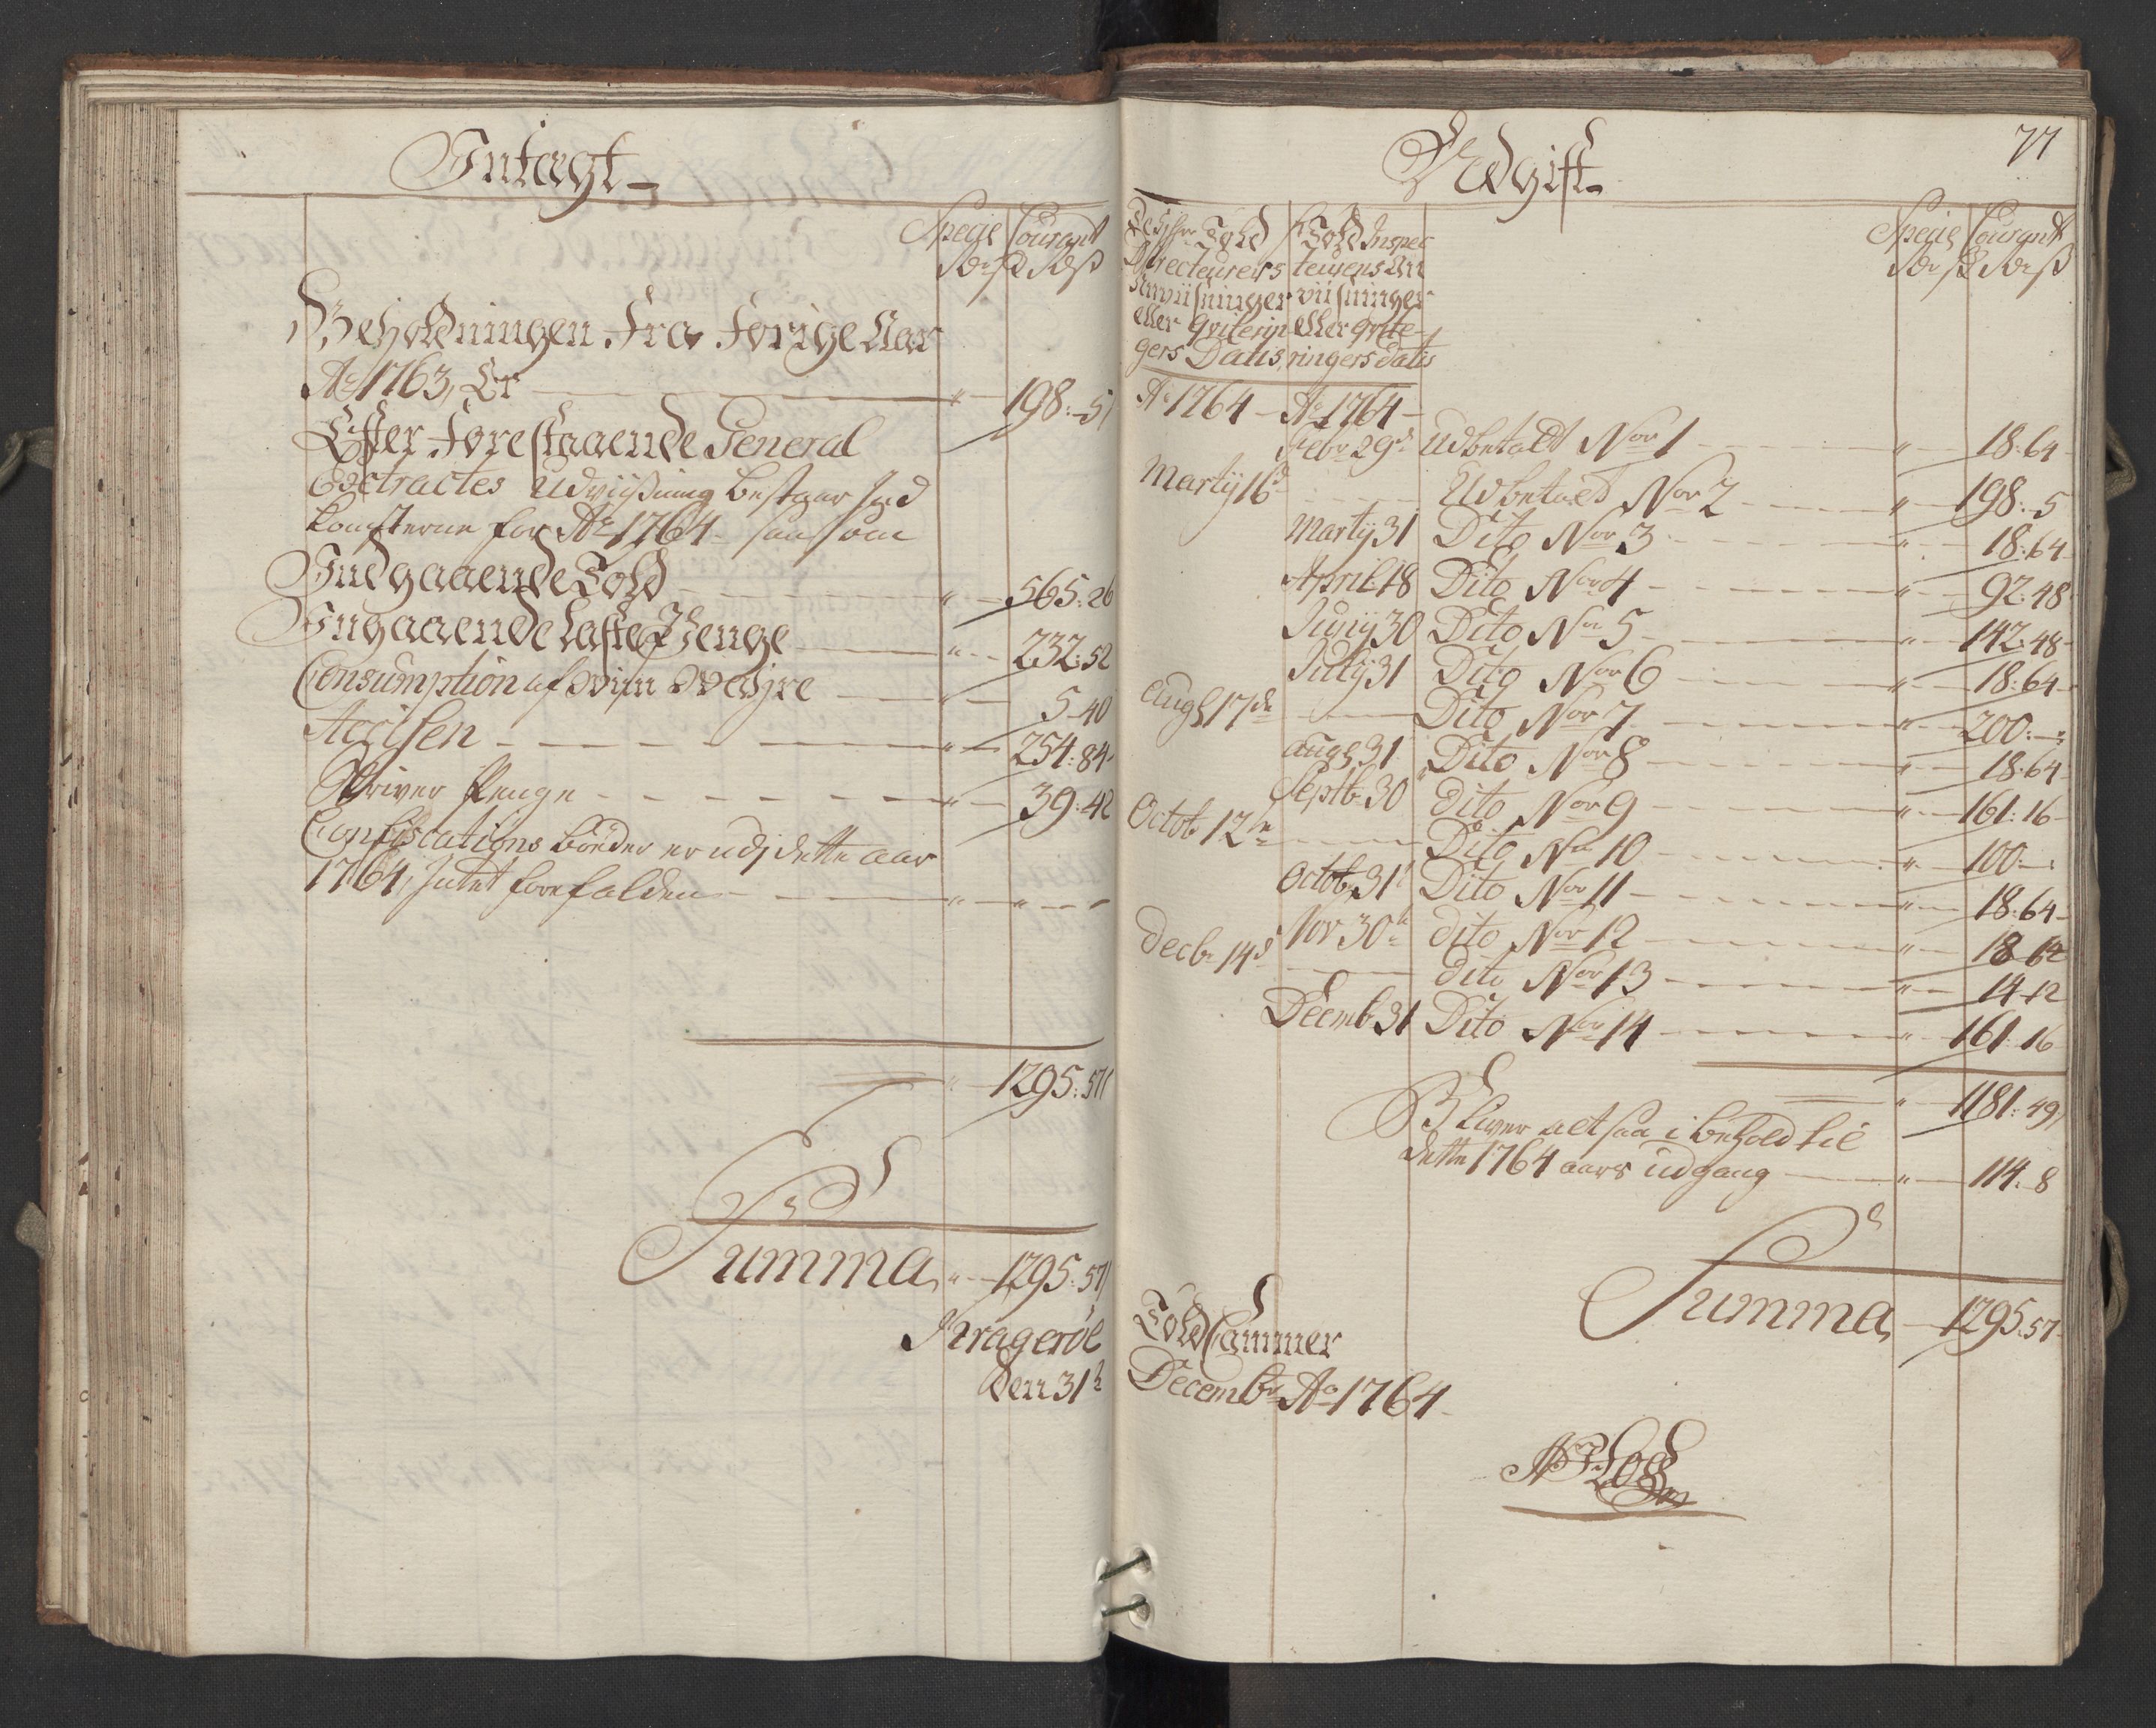 Intægt
Specie Courant
Rdr ß Rdr ß
Beholdningen fra forige Aar
Ao 1763, Er " 198:5
Efter forestaaende General
Extractes Udviißning bestaar Ind
komsterne for Ao 1764 saasom
Indgaaende Told " 565:26
Ingaaende Laste Penge " 232:52
Consumption af " 5-40
Accisen " 254:84
Skriver Penge " 39:42
Confiscations bøder er udj dette aar
1764, Intet forefalden " "
" 1295:57
Summa " 1295:57
Kragerøe
den 31te
77
Udgift
Told Directeurers Anviisninger eller Qviteringers Datis
Told Inspecteurens Anviisninger eller Qviteringers Datis
Specie Courant
Rdr ß Rdr ß
Ao 1764 Ao 1764
Febr 29d Udbetalt Nor 1 " 18:64
Martij 16d Udbetalt Nor 2 " 198:5
Martij 31 Dito Nor 3 " 18:64
April 18 Dito Nor 4 " 92:48
Junij 30 Dito No 5 " 142:48
Julij 31 Dito Nor 6 " 18:64
Aug 17de Dito Nor 7 " 200:
Aug 31 Dito Nor 8 " 18:64
Septb 30 dito Nor 9 " 161:16
Octob 12te Dito No 10 " 100:
Octob 31t Dito Nor 11 " 18:64
Nov 30te dito Nor 12 " 18 64
Decb 14d dito Nor 13 " 14-12
Decmb 31 Dito Nor 14 " 161:16
" 1181:49
Bliver altsaa i behold til
dette 1764 aars udgang " 114:8
Summa 1295:57
Told Cammer
Decembr Ao 1764